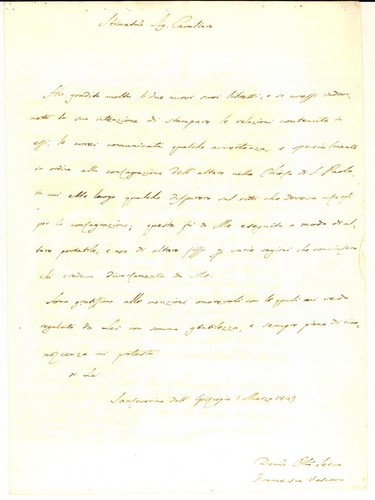 Stimatis̃. Sig. Cavaliere
Ho gradito molto li due nuovi suoi libretti, e se avessi indovi-
nato la sua intenzione di stampare le relazioni contenute in
essi, le avrei comunicata qualche avvertenza, e specialmente
in ordine alla consagrazione dell'altare nella Chiesa di S. Paolo,
in cui ebbe luogo qualche disparere sul rito che doveva usarsi
per la consagrazione; questa fu da Me eseguita a modo di al-
tare portatile, e non di altare fisso, per varie ragioni che convinsero
chi credeva diversamente da Me.
Sono gratissimo alle menzioni onorevoli con le quali mi vedo
regalato da Lei con somma gentilezza, e sempre pieno di rico-
noscenza mi protesto
di Lei
Sanseverino dall'Episcopio 1 Marzo 1849
Francesco Vescovo